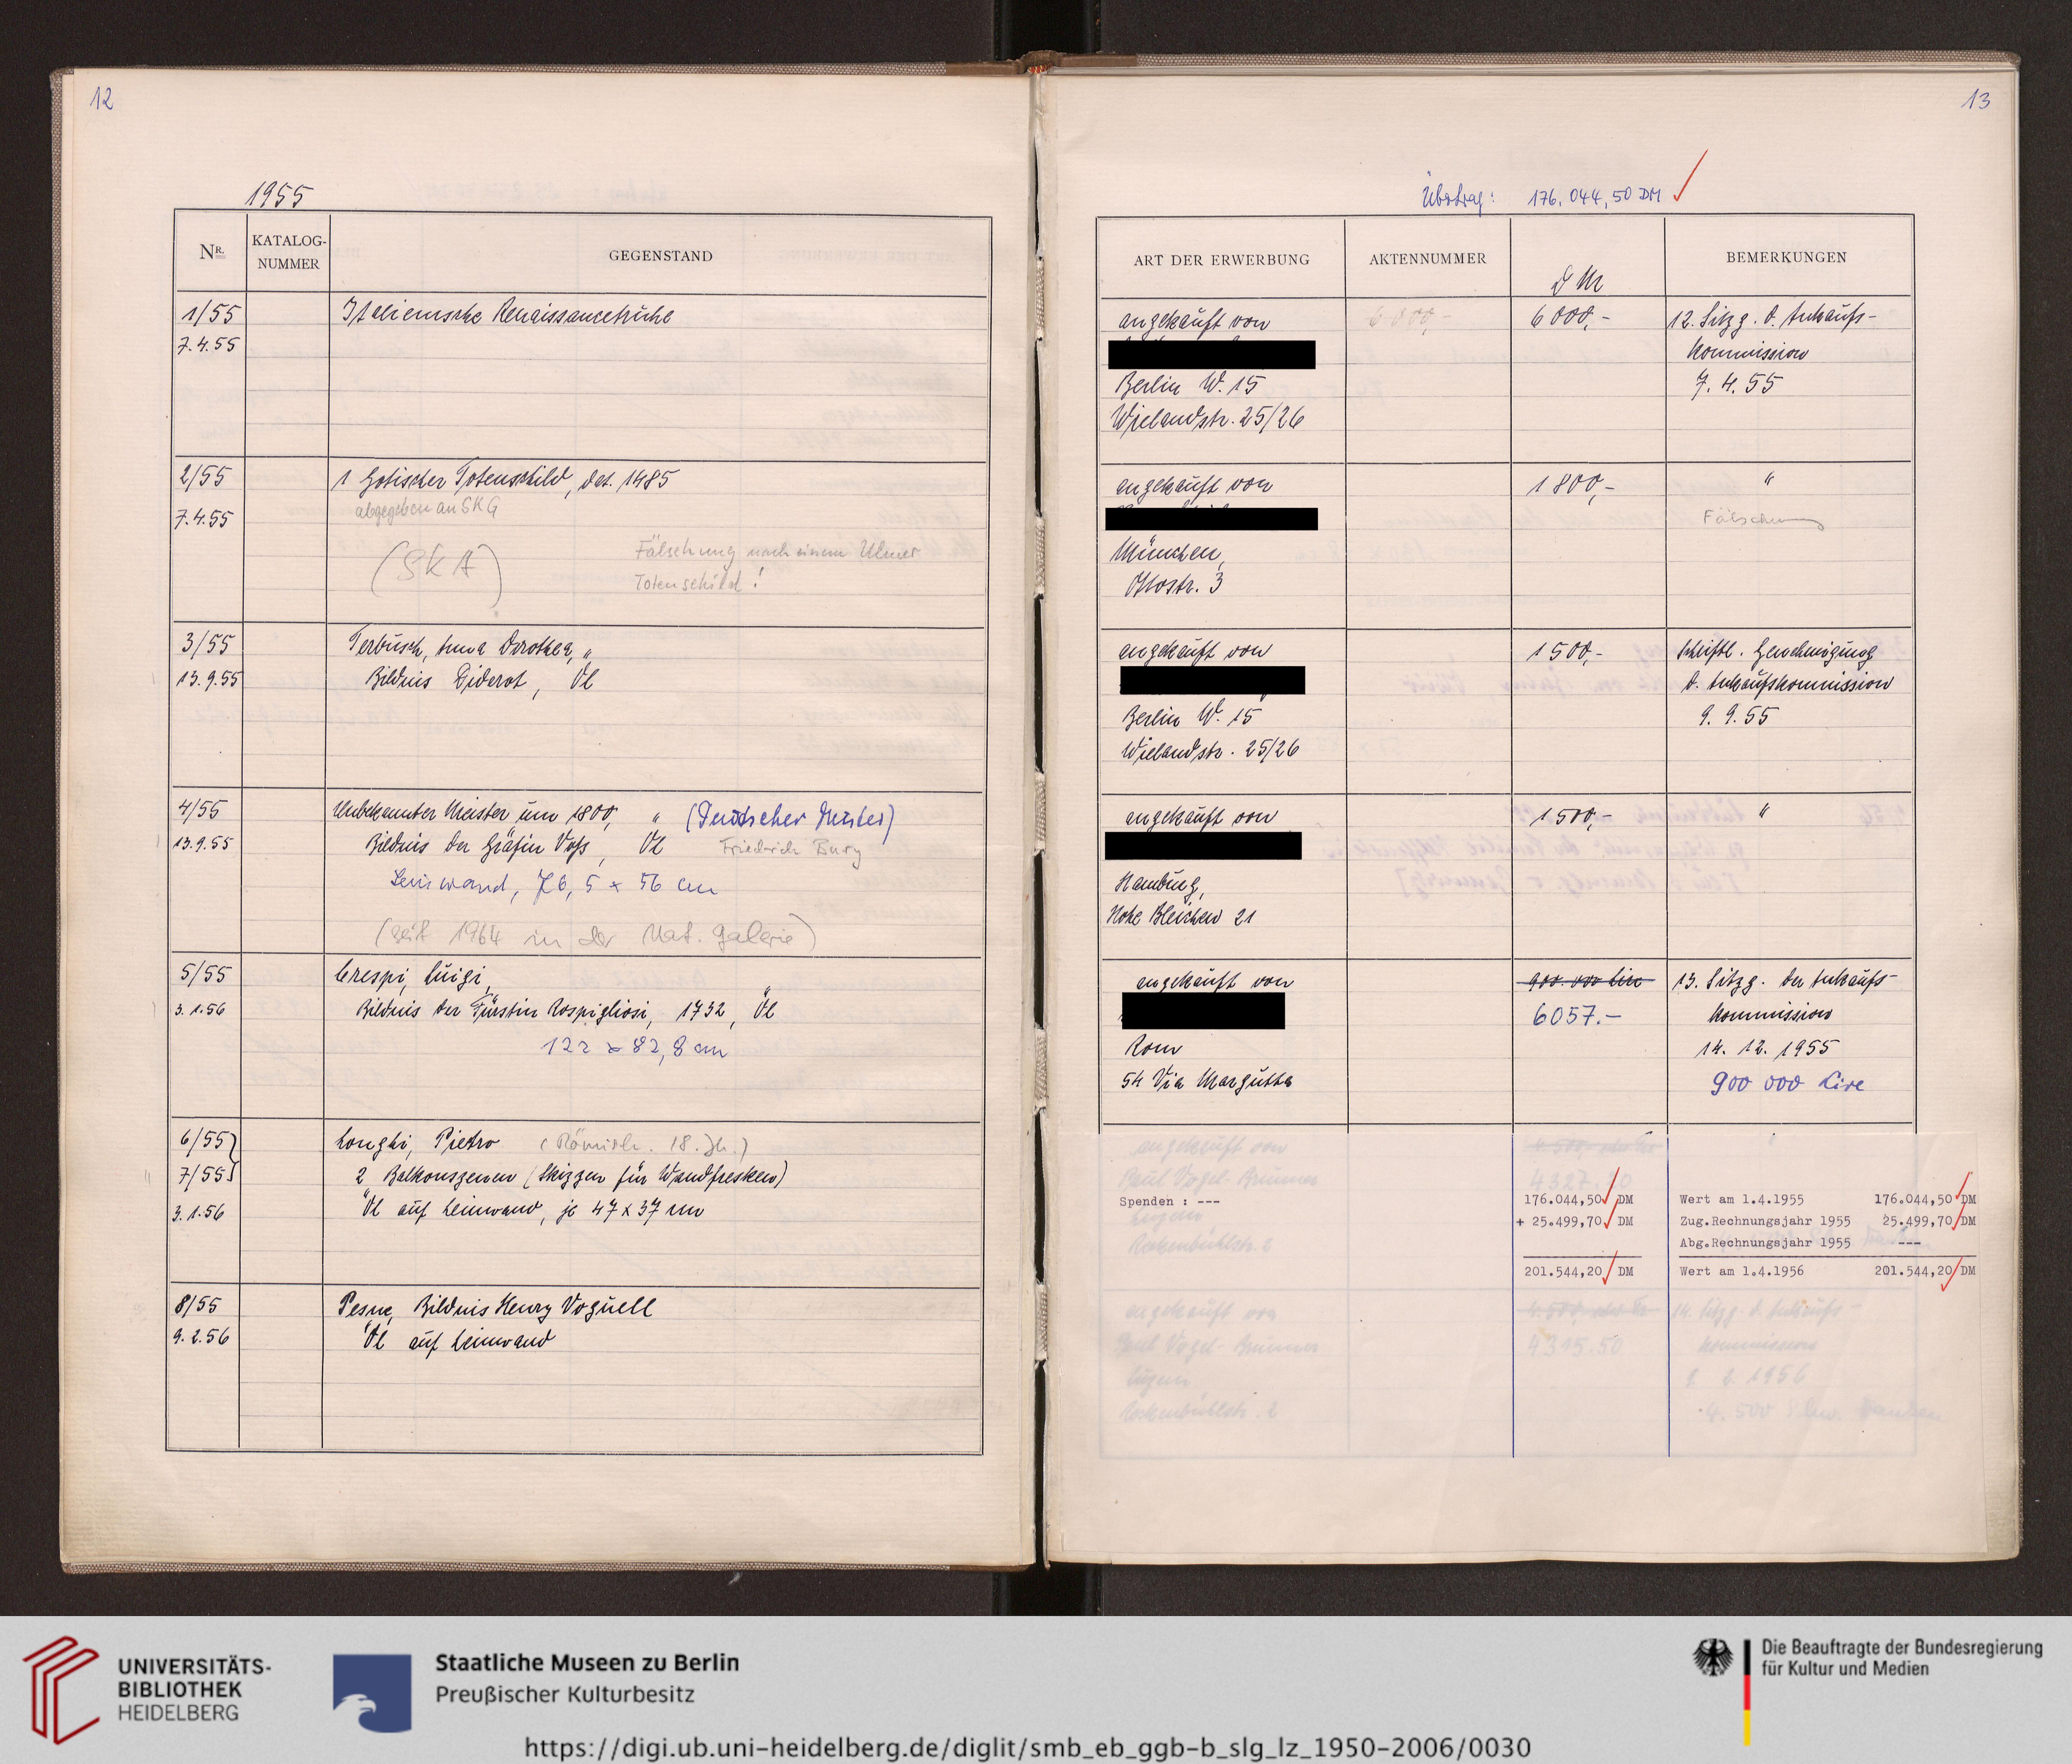 12
1955
NR.
KATALOG-
NUMMER
GEGENSTAND
1/55
7.4.55
Italienische Renaissancetruhe
2/55
7.4.55
1 Gotischer Totenschild, dat. 1485
abgegeben an SKG
(SKA)
Fälschung nach einem Ulmer
Totenschild!
3/55
13.9.55
Terbusch, Anna Dorothea,
Bildnis Diderot, Öl
4/55
13.9.55
Unbekannter Meister um 1800, (Deutscher Meister)
Bildnis der Gräfin Voss, Öl Friedrich Bury
Leinwand, 76,5 x 56 cm
(seit 1964 in der Nat. Galerie)
5/55
3.1.56
Crespi, Luigi,
Bildnis der Fürstin Rospigliosi, 1732, Öl
122 x 82,8 cm
6/55
7/55
3.1.56
Longhi, Pietro (Römisch. 18. Jh.)
2 Balkonszenen (Skizzen für Wandfresken)
Öl auf Leinwand, je 47 x 37 cm
8/55
9.2.56
Pesne, Bildnis Henry Voguell
Öl auf Leinwand
13
Übertrag: 176.044,50 DM
ART DER ERWERBUNG
AKTENNUMMER
DM
BEMERKUNGEN
angekauft von
Berlin W. 15
Wielandstr. 25/26
6000,-
6000,-
12. Sitzg. d. Ankaufs-
kommission
7.4.55
angekauft von
München,
Ottostr. 3
1800,-
"
Fälschung
angekauft von
Berlin W. 15
Wielandstr. 25/26
1500,-
Schriftl. Genehmigung
d. Ankaufskommission
9.9.55
angekauft von
Hamburg,
Hohe Bleichen 21
1500,-
"
angekauft von
Rom
54 Via Margutta
900.000 Lire
6057.-
13. Sitzg. der Ankaufs-
kommission
14.12.1955
900 000 Lire
angekauft von
Paul Vogel-Brunner
Luzern
4327.
Spenden : ---
176.044,50 DM
+ 25.499,70 DM
201.544,20 DM
Wert am 1.4.1955 176.044,50 DM
Zug.Rechnungsjahr 1955 25.499,70 DM
Abg.Rechnungsjahr 1955 ---
Wert am 1.4.1956 201.544,20 DM
angekauft von
Paul Vogel-Brunner
Luzern
4315.50
14. Sitzg. d. Ankaufs-
kommission
2. 1956
UNIVERSITÄTS-
BIBLIOTHEK
HEIDELBERG
Staatliche Museen zu Berlin
Preußischer Kulturbesitz
Die Beauftragte der Bundesregierung
für Kultur und Medien
https://digi.ub.uni-heidelberg.de/diglit/smb_eb_ggb-b_slg_lz_1950-2006/0030